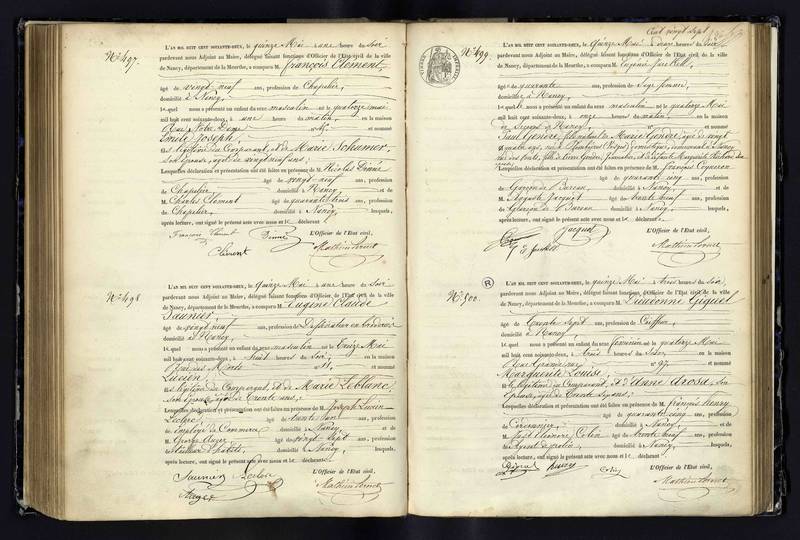 N° 497.
L'AN MIL HUIT CENT SOIXANTE-DEUX, le quinze Mai une heure du Soir
pardevant nous Adjoint au Maire, délégué faisant fonctions d'Officier de l'Etat civil de la ville
de Nancy, département de la Meurthe, a comparu M. François Clément,
âgé de vingt neuf ans, profession de Chapelier,
domicilié à Nancy,
lequel nous a présenté un enfant du sexe masculin né le quatorze mai
mil huit cent soixante-deux, à une heure du matin, en la maison
Rue Notre Dame et nommé
Emile Joseph
fils légitime du Comparant, & de Marie Schumer,
son Epouse, âgée de vingt neuf ans;
Lesquelles déclaration et présentation ont été faites en présence de M. Nicolas Dinné
âgé de vingt neuf ans, profession
de Chapelier domicilié à Nancy et de
M. Charles Clément âgé de quarante trois ans, profession
de Chapelier, domicilié à Nancy, lesquels,
après lecture, ont signé le présent acte avec nous et le déclarant
François Clément Dinné L'Officier de l'Etat civil,
Clément
N° 498
L'AN MIL HUIT CENT SOIXANTE-DEUX, le quinze Mai à une heure du Soir
pardevant nous Adjoint au Maire, délégué faisant fonctions d'Officier de l'Etat civil de la ville
de Nancy, département de la Meurthe, a comparu M. Eugène Claude
Saunier
âgé de vingt neuf ans, profession de Dessinateur en broderies
domicilié à Nancy
lequel nous a présenté un enfant du sexe masculin né le treize Mai
mil huit cent soixante-deux, à huit heures du Soir, en la maison
N° 11, et nommé
Lucien,
fils légitime du Comparant, & de Marie Leblanc
son Epouse, âgée de trente ans;
Lesquelles déclaration et présentation ont été faites en présence de M. Joseph Lucien
Leclerc âgé de trente ans, profession
de Employé de Commerce domicilié à Nancy et de
M. George Auger âgé de vingt sept ans, profession
de domicilié à Nancy, lesquels,
après lecture, ont signé le présent acte avec nous et le déclarant
Saunier Leclerc L'Officier de l'Etat civil,
Auger
Cent vingt sept
N° 499
L'AN MIL HUIT CENT SOIXANTE-DEUX, le quinze Mai heures du Soir
pardevant nous Adjoint au Maire, délégué faisant fonctions d'Officier de l'Etat civil de la ville
de Nancy, département de la Meurthe, a comparu M. Eugénie
âgé de quarante ans, profession de Sage femme,
domicilié à Nancy
lequel nous a présenté un enfant du sexe masculin né le quatorze Mai
mil huit cent soixante-deux, à onze heures du matin, en la maison
de Secours de Nancy et nommé
Paul Genère, fils naturel de Marie Gendre, âgée de vingt
quatre ans, née à Plombières (Vosges) domestique, demeurant à Nancy
Lesquelles déclaration et présentation ont été faites en présence de M. François
âgé de quarante cinq ans, profession
de Garçon de Bureau domicilié à Nancy et de
M. Auguste Jacquot âgé de trente neuf ans, profession
de Garçon de Bureau domicilié à Nancy lesquels,
après lecture, ont signé le présent acte avec nous et le déclarant
Jacquot L'Officier de l'Etat civil,
R
N° 500.
L'AN MIL HUIT CENT SOIXANTE-DEUX, le quinze Mai à trois heures du Soir,
pardevant nous Adjoint au Maire, délégué faisant fonctions d'Officier de l'Etat civil de la ville
de Nancy, département de la Meurthe, a comparu M. Dieudonné Guguel
âgé de trente sept ans, profession de Coiffeur,
domicilié à Nancy,
lequel nous a présenté un enfant du sexe féminin né le quatorze Mai
mil huit cent soixante-deux, à trois heures du Soir en la maison
N° 97, et nommé
Marguerite Louise
fille légitime du Comparant, & d'Anne Arosa, son
Epouse, âgée de trente ans;
Lesquelles déclaration et présentation ont été faites en présence de M. François Henry
âgé de quarante cinq ans, profession
de domicilié à Nancy, et de
M. Just Eléonore Colin âgé de trente neuf ans, profession
de Agent de police domicilié à Nancy, lesquels,
après lecture, ont signé le présent acte avec nous et le déclarant
Henry Colin L'Officier de l'Etat civil,